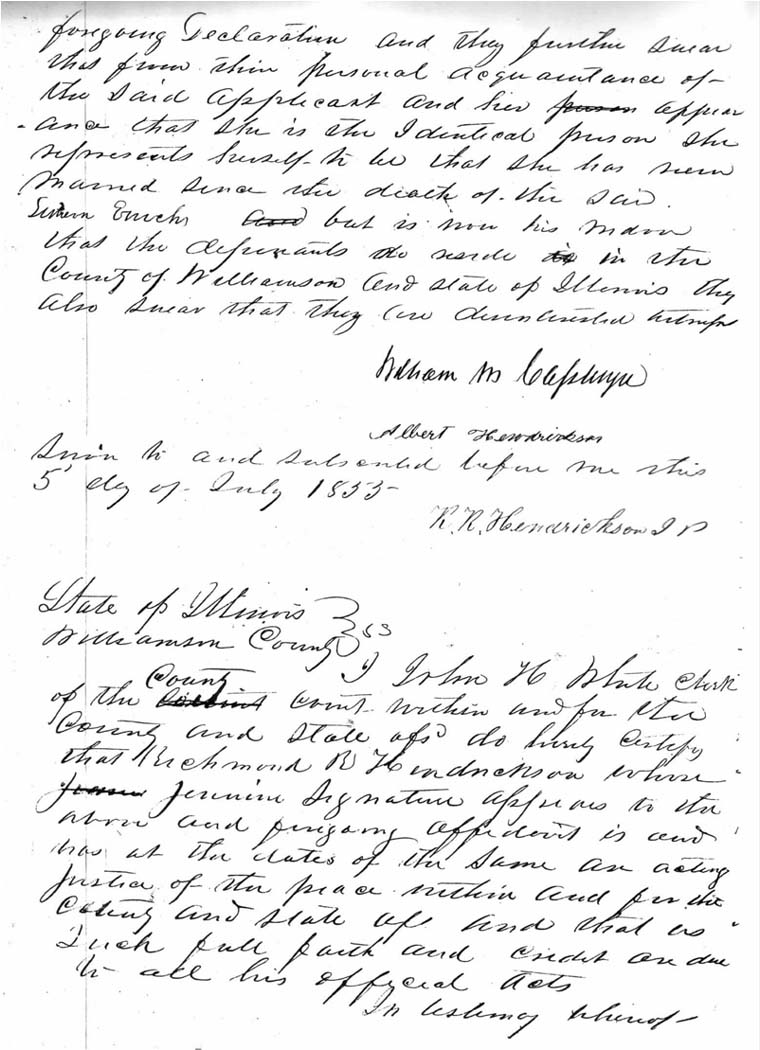 foregoing Declaration and they further swear
that from their personal acquaintance of
the said applicant and her person appear
-ance that she is the Identical person she
represents herself to be that she has never
married since the death of the said
and but is now his widow
that the deponants do reside in in the
County of Williamson and state of Illinois they
also swear that they are disinterested witness
William M
Albert Hendrickson
Sworn to and subscribed before me this
5 day of July 1855
R. R. Hendrickson J P
State of Illinois
Williamson County } SS
I John H White Clerk
County
of the Court within and for the
County and state afsd do hereby Certify
that Richmond R Hendrickson whose
Jennine Signature appears to the
above and foregoing affidavit is and
was at the dates of the same an acting
Justice of the peace within and for the
County and state afs and that as
Such full faith and credit are due
to all his official acts
In testimony whereof